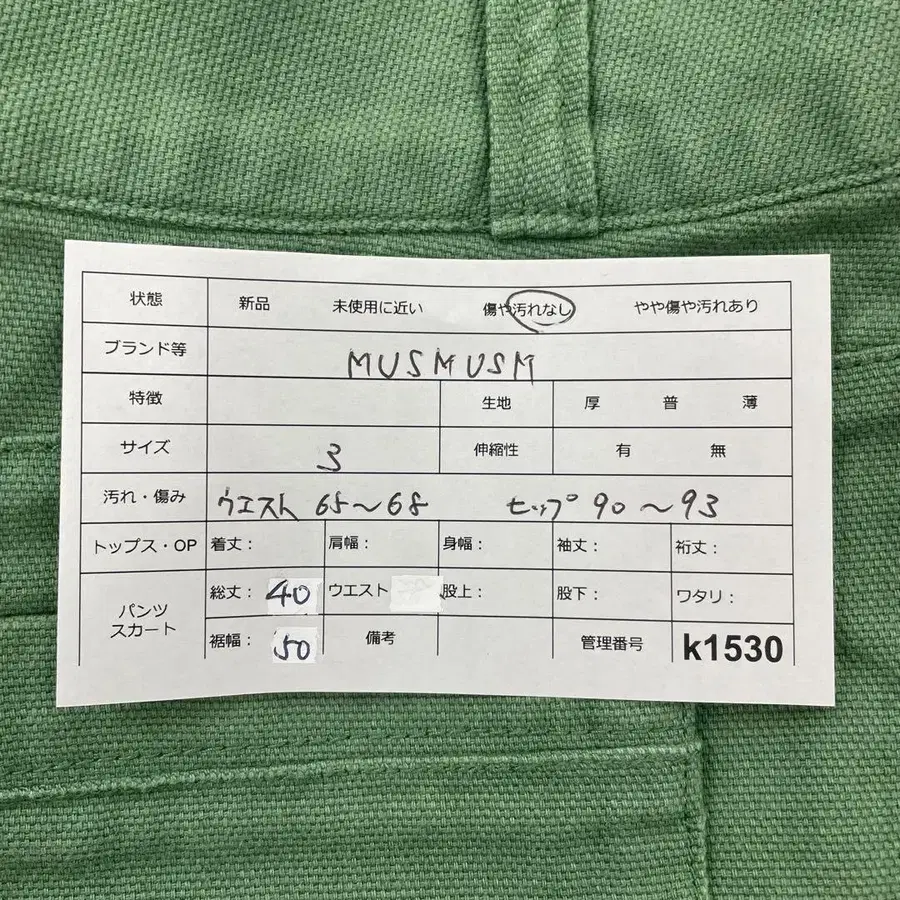 状態 新品 未使用に近い 傷や汚れなし やや傷や汚れあり
ブランド等 MUSMUSM
特徴 生地 厚 普 薄
サイズ 3 伸縮性 有 無
汚れ・傷み ウエスト 65〜68 ヒップ 90〜93
トップス・OP 着丈： 肩幅： 身幅： 袖丈： 裄丈：
パンツ
スカート
総丈： 40 ウエスト 股上： 股下： ワタリ：
裾幅： 50 備考 管理番号 k1530